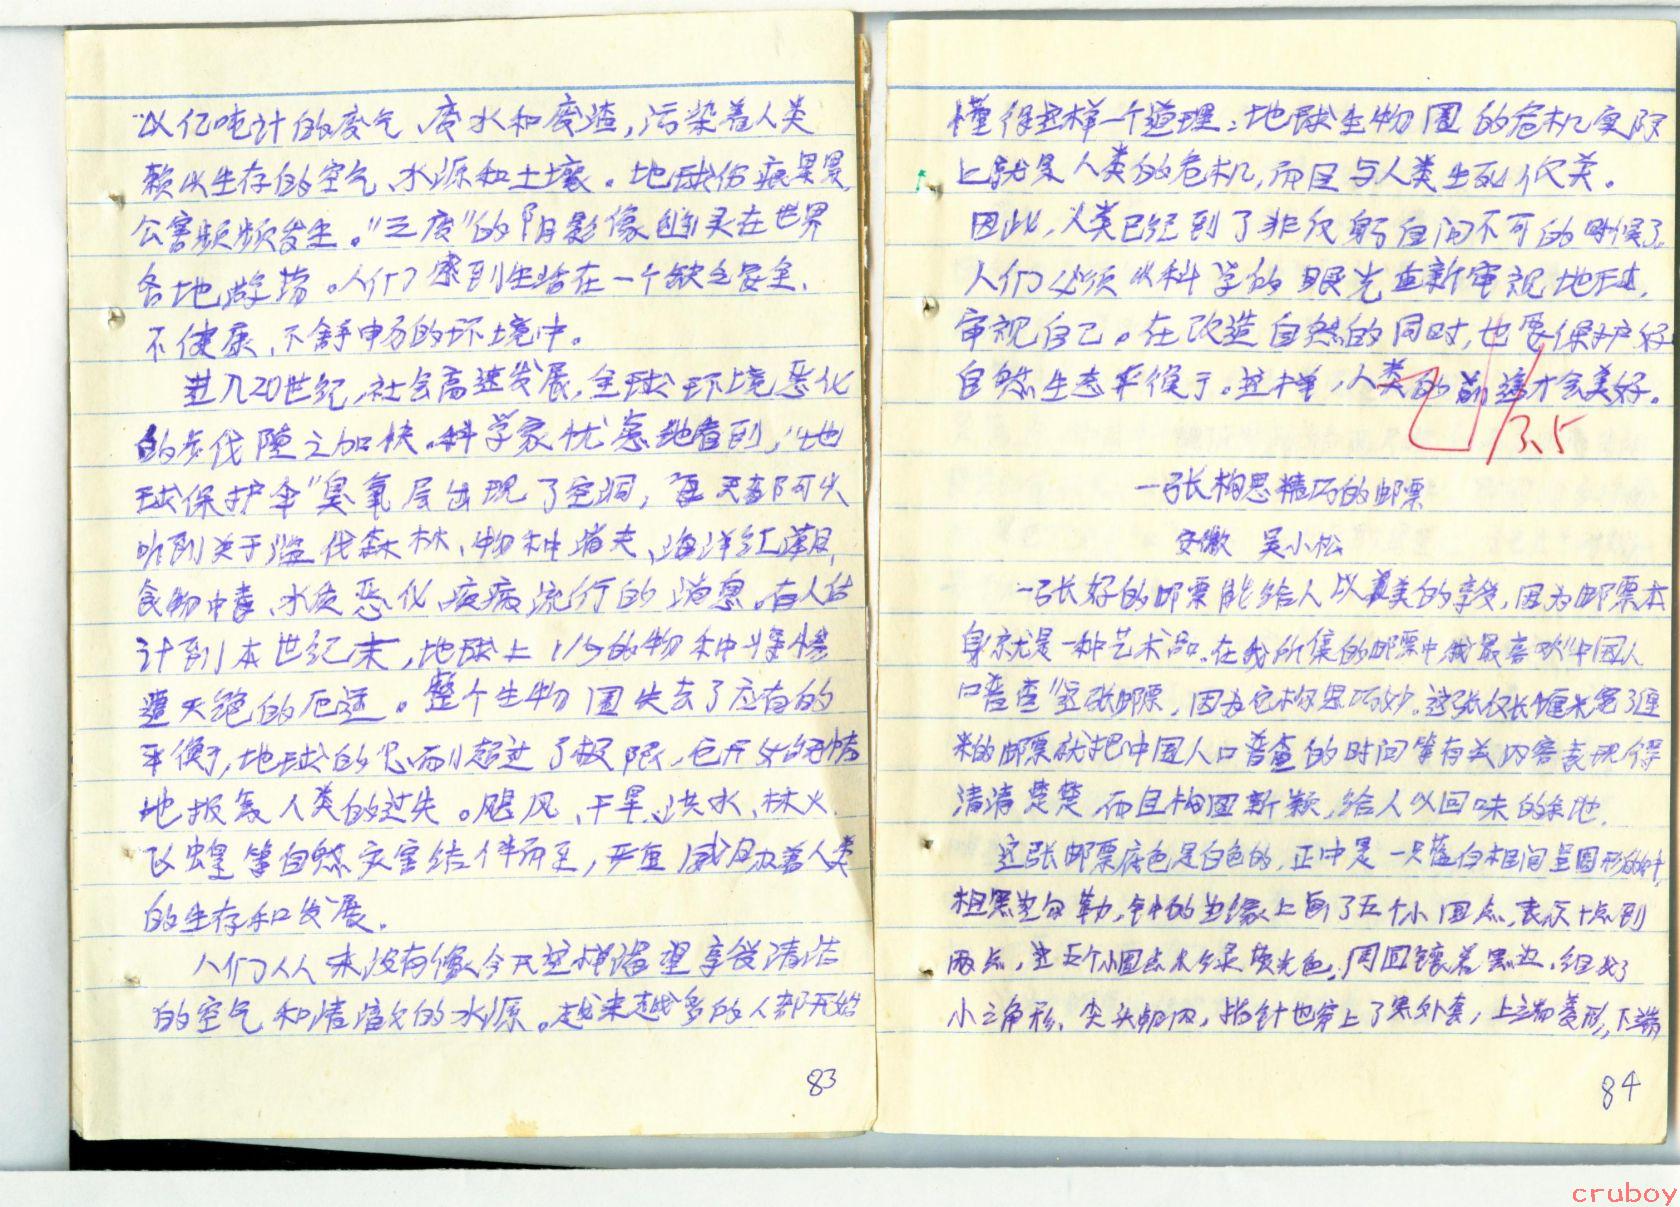 以亿吨计的废气、废水和废渣，污染着人类
赖以生存的空气、水源和土壤。地球伤痕累累，
公害频频发生。“三废”的阴影像幽灵在世界
各地游荡。人们感到生活在一个缺乏安全、
不健康、不舒畅的环境中。
进入20世纪，社会高速发展，全球环境恶化
的步伐随之加快。科学家忧虑地看到，“地
球保护伞”臭氧层出现了空洞，每天都可以
听到关于滥伐森林、物种消失、海洋红潮、
食物中毒、水质恶化、疫病流行的消息。有人估
计到本世纪末，地球上1/5的物种将惨
遭灭绝的厄运。整个生物圈失去了应有的
平衡，地球的忍耐超过了极限，它开始无情
地报复人类的过失。飓风、干旱、洪水、林火、
飞蝗等自然灾害结伴而至，严重威胁着人类
的生存和发展。
人们从来没有像今天这样渴望享受清洁
的空气和清澈的水源。越来越多的人都开始
83
懂得这样一个道理：地球生物圈的危机实际
上就是人类的危机，而且与人类生死攸关。
因此，人类已经到了非反躬自问不可的时候了。
人们必须以科学的眼光重新审视地球，
审视自己。在改造自然的同时，也要保护好
自然生态平衡。这样，人类的前途才会美好。
3.5
一张构思精巧的邮票
安徽 吴小松
一张好的邮票能给人以美的享受，因为邮票本
身就是一种艺术品。在我所集的邮票中，我最喜欢“中国人
口普查”这张邮票，因为它构思巧妙。这张仅长4厘米宽3厘
米的邮票就把中国人口普查的时间等有关内容表现得
清清楚楚，而且构图新颖，给人以回味的余地。
这张邮票底色是白色的，正中是一只蓝白相间呈圆形的钟，
粗黑边勾勒，钟的边缘上画了五个小圆点，表示十点到
两点，这五个小圆点米绿荧光色，周围镶着黑边，组成了
小三角形，尖头朝内，指针也穿上了黑外套，上端菱形，下端
84
cruboy